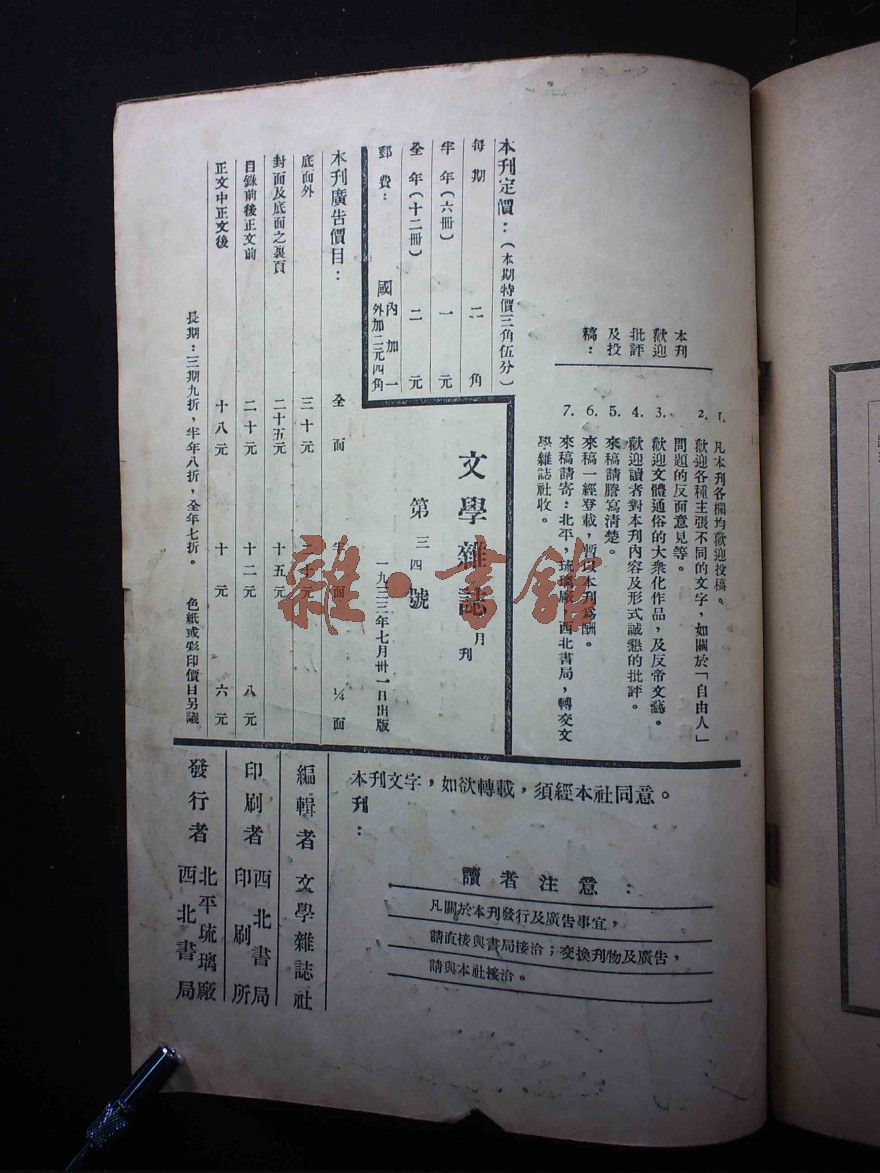 本刊
歡迎
批評
及投
稿：
1. 凡本刊各欄均歡迎投稿。
2. 歡迎各種主張不同的文字，如關於「自由人」
問題的反面意見等。
3. 歡迎文體通俗的大衆化作品，及反帝文藝。
4. 歡迎讀者對本刊內容及形式誠懇的批評。
5. 來稿請謄寫清楚。
6. 來稿一經登載，暫以本刊爲酬。
7. 來稿請寄：北平，琉璃廠，西北書局，轉交文
學雜誌社收。
本刊定價：（本期特價三角伍分）
每期 二角
半年（六冊） 一元
全年（十二冊） 二元
郵費： 國內加一
外加二元四角
文學雜誌 月刊
第三四號
一九三三年七月卅一日出版
本刊廣告價目： 全面 半面 ¼面
底面外 三十元 二十元
封面及底面之裏頁 二十五元 十五元
目錄前後正文前 二十元 十二元 八元
正文中正文後 十八元 十元 六元
長期：三期九折，半年八折，全年七折。 色紙或彩印價目另議
本刊文字，如欲轉載，須經本社同意。
刊：
讀者注意：
凡關於本刊發行及廣告事宜，
請直接與書局接洽；交換刊物及廣告，
請與本社接洽。
編輯者 文學雜誌社
印刷者 西北書局
印刷所
發行者 北平琉璃廠
西北書局
雜·書館